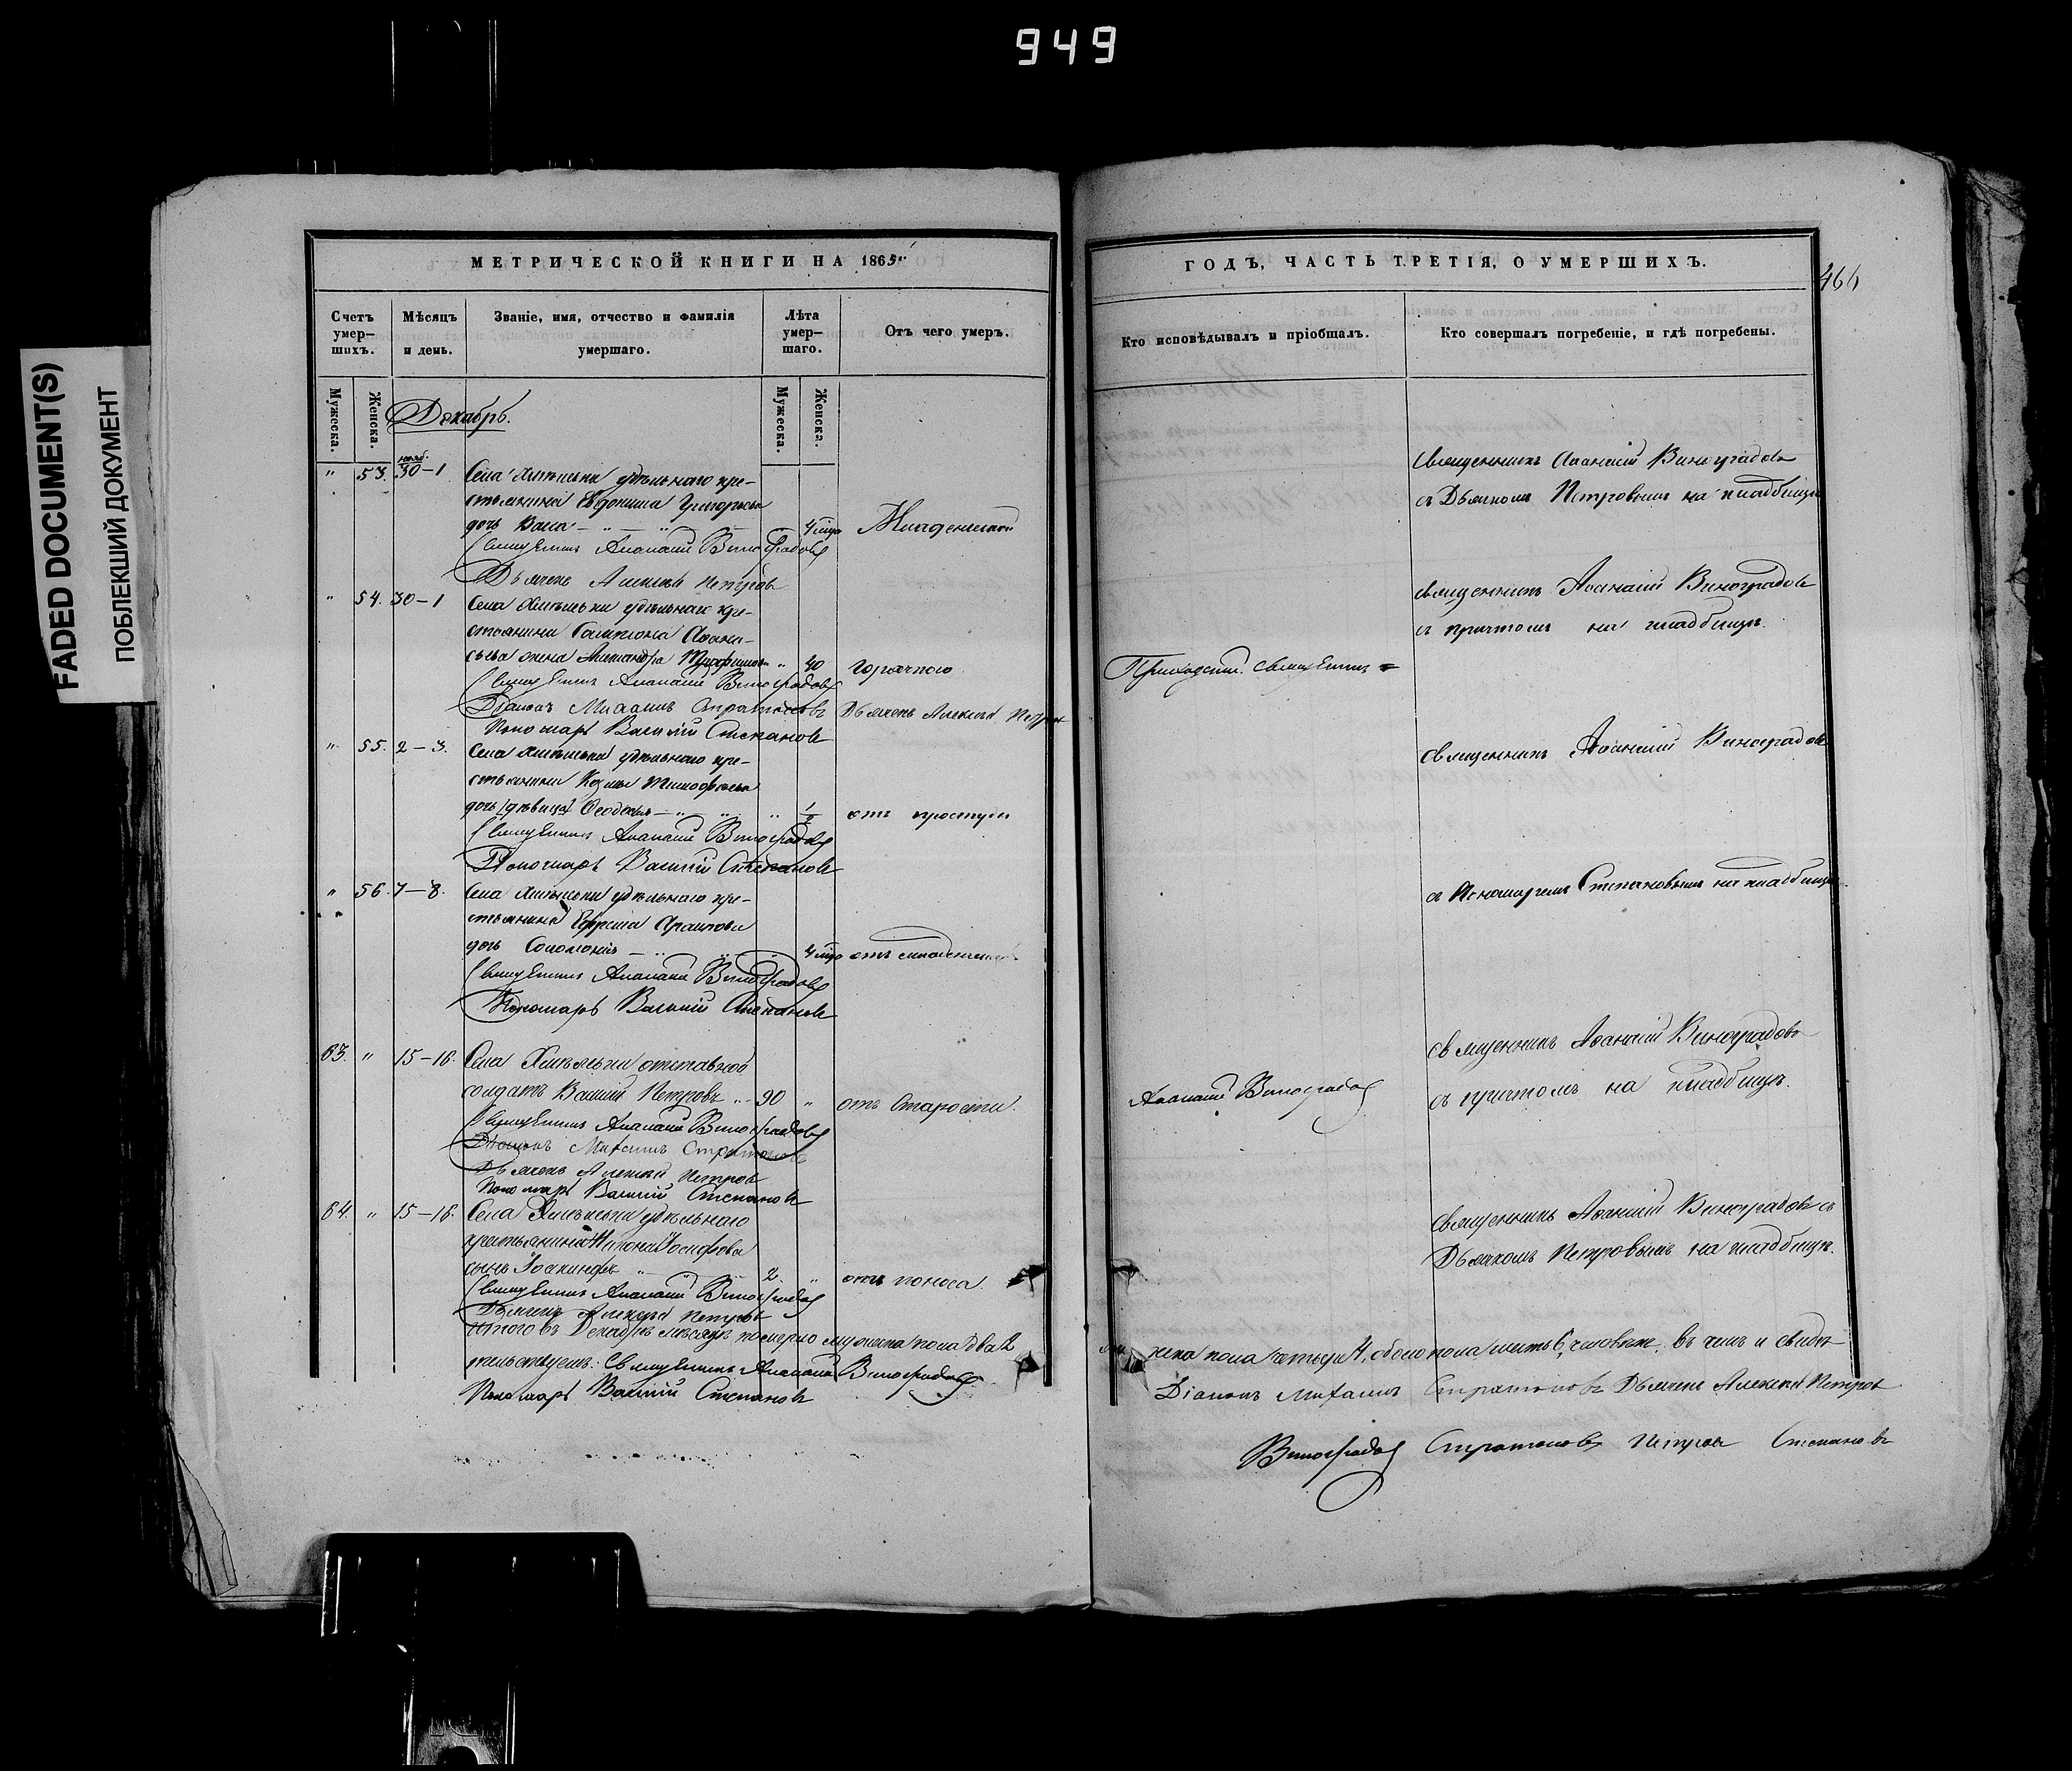 949
FADED DOCUMENT(S)
ПОБЛЕКШИЙ ДОКУМЕНТ
МЕТРИЧЕСКОЙ КНИГИ НА 1865
Счетъ умер–шихъ.
Мѣсяцъ и день.
Званіе, имя, отчество и фамилія умершаго.
Лѣта умер–шаго.
Отъ чего умеръ.
Мужеска.
Женска.
Мужеска.
Женска.
Декабрь.
нояб.
" 53. 30–1 Села удѣльнаго кре-
стьянина Евдокима Григорьева
дочь 4 Младенческой
Священникъ Аѳанасий Виноградовъ
Дьячекъ Алексѣй Петровъ
" 54. 30–1 Села удѣльнаго кре-
стьянина Аѳана-
сьева жена Александра " 40 горячкою
Священникъ Аѳанасий Виноградовъ
Діаконъ Михаилъ Стратоновъ Дьячекъ Алексѣй Петровъ
Пономарь Василій Степановъ
" 55. 2–3. Села удѣльнаго кре-
стьянина Козмы Тимофеева
дочь [дѣвица] " 1/2 отъ простуды
Священникъ Аѳанасий Виноградовъ
Пономарь Василій Степановъ
" 56. 7–8. Села удѣльнаго кре-
стьянина
дочь Соломонія 4 отъ
Священникъ Аѳанасий Виноградовъ
Пономарь Василій Степановъ
63. " 15–16. Села отставной
солдатъ Василій Петровъ 90 " отъ старости.
Священникъ Аѳанасий Виноградовъ
Діаконъ Михаилъ Стратоновъ
Дьячекъ Алексѣй Петровъ
Пономарь Василій Степановъ
64. " 15–16. Села удѣльнаго
крестьянина Іосифова
сынъ 2. " отъ поноса.
Священникъ Аѳанасий Виноградовъ
Дьячекъ Алексѣй Петровъ
Итого въ Декабрѣ мѣсяцѣ померло мужеска пола два 2
Священникъ Аѳанасий Виноградовъ
Пономарь Василій Степановъ
ГОДЪ, ЧАСТЬ ТРЕТІЯ, О УМЕРШИХЪ.
466
Кто исповѣдывалъ и пріобщалъ.
Кто совершалъ погребеніе, и гдѣ погребены.
Священникъ Аѳанасій Виноградовъ
съ Дьячкомъ Петровымъ на кладбищѣ
Священникъ Аѳанасій Виноградовъ
съ причтомъ на кладбищѣ.
Приходский священникъ
Священникъ Аѳанасій Виноградовъ
съ Пономаремъ Степановымъ на кладбищѣ.
Священникъ Аѳанасій Виноградовъ
съ причтомъ на кладбищѣ.
Аѳанасий Виноградовъ
Священникъ Аѳанасій Виноградовъ съ
Дьячкомъ Петровымъ на кладбищѣ.
женска пола четыре 4, обоего пола шесть 6, человѣкъ. въ чемъ и свидѣ-
Діаконъ Михаилъ Стратоновъ Дьячекъ Алексѣй Петровъ
Виноградовъ Стратоновъ Петровъ Степановъ